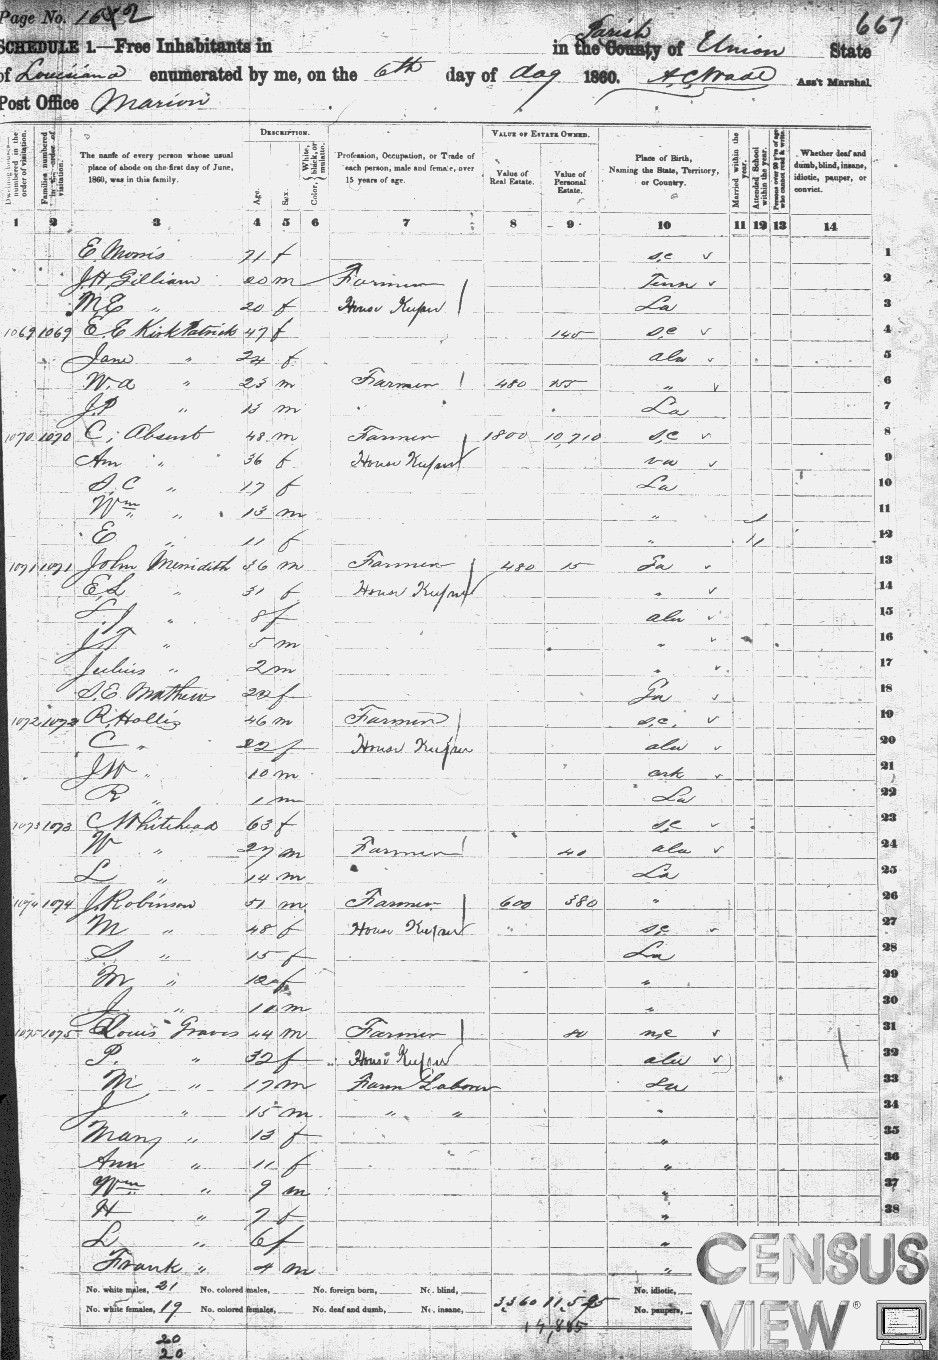 Page No. 162
667
SCHEDULE 1.—Free Inhabitants in in the County Parish of Union State
of Louisiana enumerated by me, on the 6th day of Aug 1860. A C Wade Ass't Marshal.
Post Office Marion
DESCRIPTION. VALUE OF ESTATE OWNED.
Dwelling-houses—numbered in the order of visitation.
Families numbered in the order of visitation.
The name of every person whose usual place of abode on the first day of June, 1860, was in this family.
Age.
Sex.
Color, {White, black, or mulatto.
Profession, Occupation, or Trade of each person, male and female, over 15 years of age.
Value of Real Estate.
Value of Personal Estate.
Place of Birth, Naming the State, Territory, or Country.
Married within the year.
Attended School within the year.
Persons over 20 y'rs of age who cannot read & write.
Whether deaf and dumb, blind, insane, idiotic, pauper, or convict.
1 2 3 4 5 6 7 8 9 10 11 12 13 14
E. Morris 71 f s,c 1
J.H. Gilliam 20 m Farmer Tenn 2
M E " 20 f House Keeper La 3
1069 1069 E E KirkPatrick 47 f 140 s,c 4
Jane " 24 f ala 5
W. a " 23 m Farmer 480 155 " 6
J.P " 15 m La 7
1070 1070 C, Absent 48 m Farmer 1800 10,710 s,c 8
Am " 36 f House Keeper va 9
S, C " 17 f La 10
Wm " 13 m " 11
E " 11 f " 12
1071 1071 John Meridith 36 m Farmer 480 15 Ga 13
E, L " 31 f House Keeper " 14
" 8 f ala 15
J.T " 5 m " 16
Julius " 2 m " 17
S.E. Mathews 22 f Ga 18
1072 1072 R. Hollis 46 m Farmer s,c, 19
C " 22 f House Keeper ala 20
J W " 10 m ark 21
R " 1 m La 22
1073 1073 C Whitehead 63 f s,c 23
W " 27 m Farmer 40 ala 24
L " 14 m La 25
1074 1074 J. Robinson 51 m Farmer 600 380 " 26
M " 48 f House Keeper s,c 27
S, " 15 f La 28
M " 12 f " 29
J " 10 m " 30
1075 1075 Louis Graves 44 m Farmer 80 n,c 31
P. " 32 f House Keeper ala 32
M " 17 m Farm Laborer La 33
J " 15 m " " " 34
Mary " 13 f " 35
Ann " 11 f " 36
Wm " 9 m " 37
H " 7 f " 38
L " 6 f "
Frank " 4 m "
No. white males, 21 No. colored males, No. foreign born, No. blind, No. idiotic,
No. white females, 19 No. colored females, No. deaf and dumb, No. insane, 3,360 11,525 No. paupers,
14,885
20
20
CENSUS
VIEW®